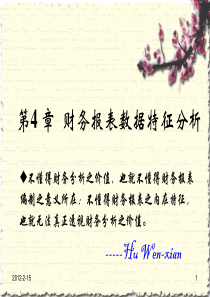 第4章 财务报表数据特征分析
◆不懂得财务分析之价值，也就不懂得财务报表
编制之意义所在；不懂得财务报表之内在特征，
也就无法真正透视财务分析之价值。
-----Hu Wen-xian
2012-2-15
1